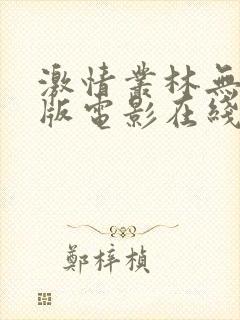 激情叢林無
版電影在綫
鄭梓楨